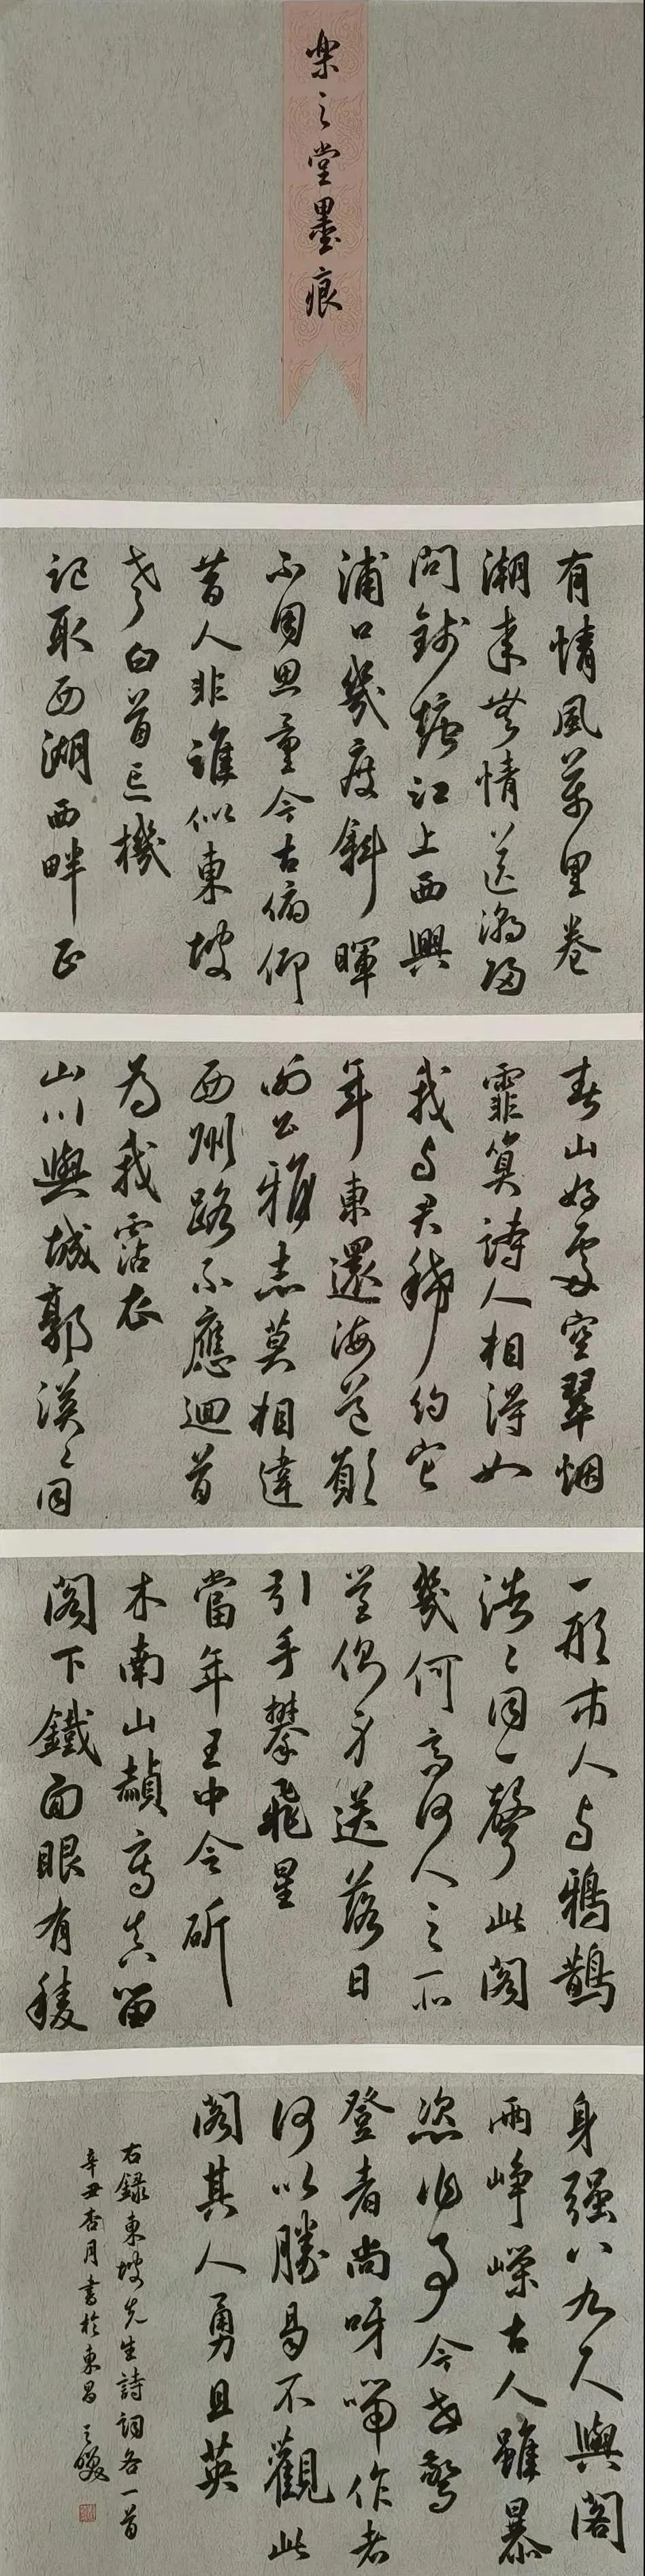 樂之堂墨痕
有情風萬里卷
潮来無情送潮歸
問錢塘江上西興
浦口幾度斜暉
不用思量今古俯仰
昔人非誰似東坡
老白首忘機
記取西湖西畔正
春山好處空翠烟
霏算詩人相得如
我与君稀約它
年東還海道願
謝公雅志莫相違
西州路不應迴首
為我霑衣
山川與城郭漠々同
一形市人与鴉鵲
浩々同一聲此閣
幾何高何人之所
營側身送落日
引手攀飛星
當年王中令斫
木南山赬寫真留
閣下鐵面眼有稜
身强八九尺與閣
兩峥嶸古人雖暴
恣作事今世驚
登者尚呀喘作者
何以勝曷不觀此
閣其人勇且英
右録東坡先生詩詞各一首
辛丑杏月書於東昌